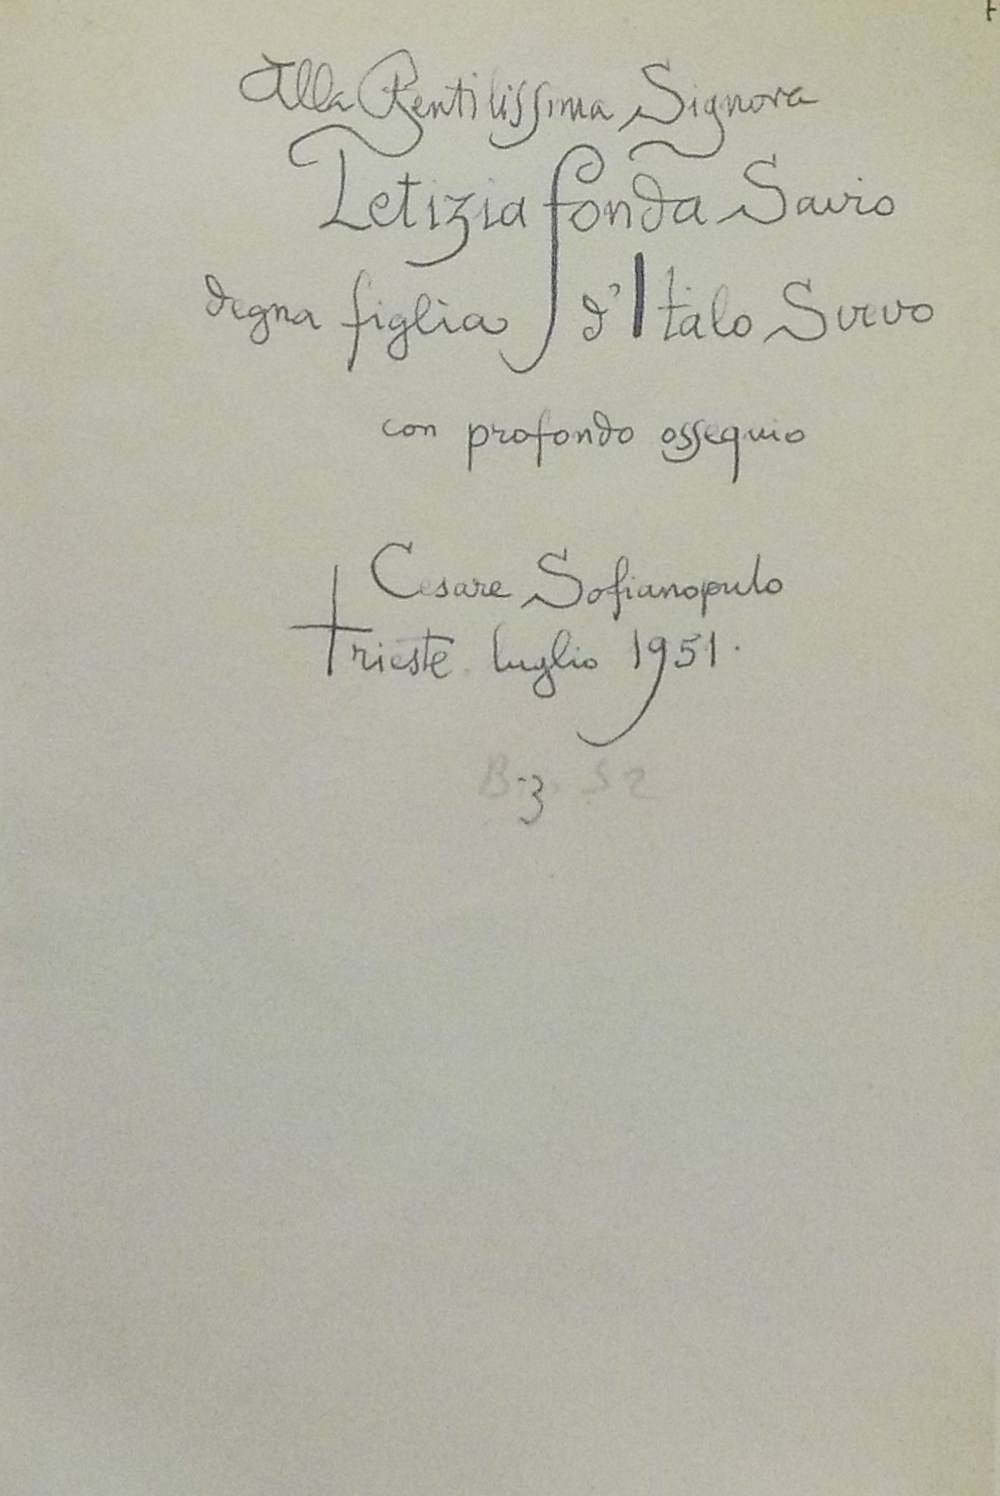 Alla Gentilissima Signora
Letizia fonda Savio
degna figlia d'Italo Svevo
con profondo ossequio
Cesare Sofianopulo
Trieste luglio 1951.